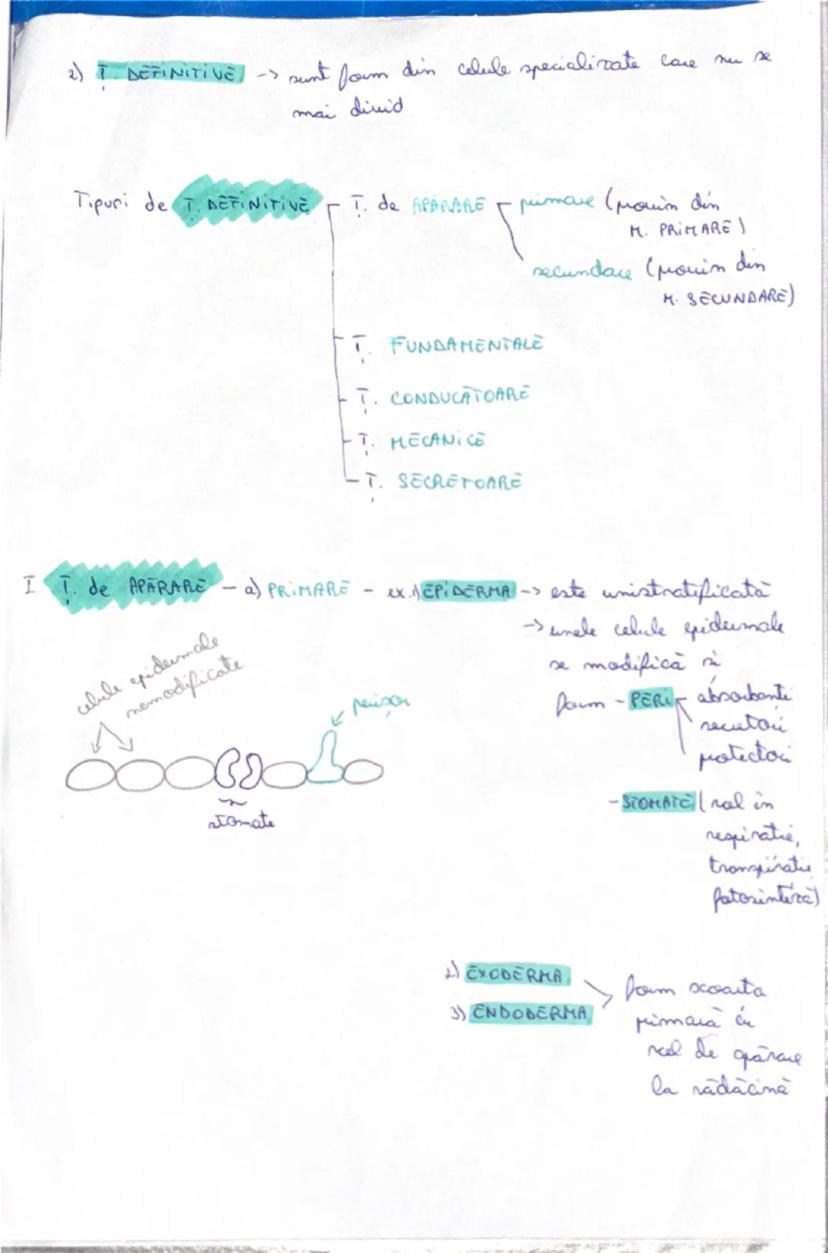 2) Ț. DEFINITIVE -> sunt form din celule specializate care nu se
mai divid
Tipuri de Ț. DEFINITIVE - Ț. de APĂRARE - primare (provin din
M. PRIMARE)
secundare (provin din
M. SECUNDARE)
- Ț. FUNDAMENTALE
- Ț. CONDUCĂTOARE
- Ț. MECANICE
- Ț. SECRETOARE
I Ț. de APĂRARE - a) PRIMARE - ex. 1) EPIDERMA -> este unistratificată
-> unele celule epidermale
se modifică și
form - PERI - absorbanți
secretori
protectori
celule epidermale
nemodificate
perișor
stomate
- STOMATE (rol în
respirație,
transpirație
fotosinteză)
2) EXODERMA
3) ENDODERMA
form scoarța
primară cu
rol de apărare
la rădăcină